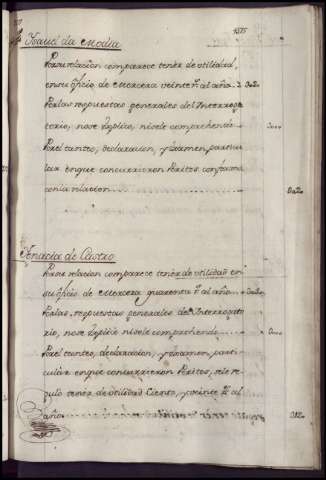 1375
Isauel da Modia
Por su relacion comparece tener de utilidad,
en su oficio de Mercera veinte r.s al año... D020
Por las respuestas generales del Interroga-
torio, no se esplico, ni se le comprehende... D...
Por el tanteo, declaracion, y examen, particu-
lar en que concurrieron Peritos conforma
con la relacion... D020
Ignacia de Castro
Por su relacion comparece tener de utilidad en
su oficio de Mercera quarenta r.s al año...
Por las respuestas generales del Interrogato-
rio, no se esplico ni se le comprehende... D...
Por el tanteo, declaracion, y examen, particu-
lar en que concurrieron Peritos, se le re-
gulò tener de utilidad Ciento, y veinte r.s al
año... D120